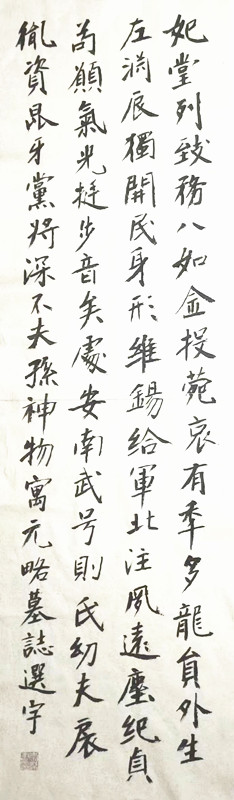 妃堂列致務八如金投菀哀有年多龍員外生
左淵辰獨開民身形維錫給軍北注夙遠塵紀貞
為願氣光挺步音矣處安南武号則氏幼夫展
胤資昆牙黨將深不夫孫神物寓元略墓誌選字